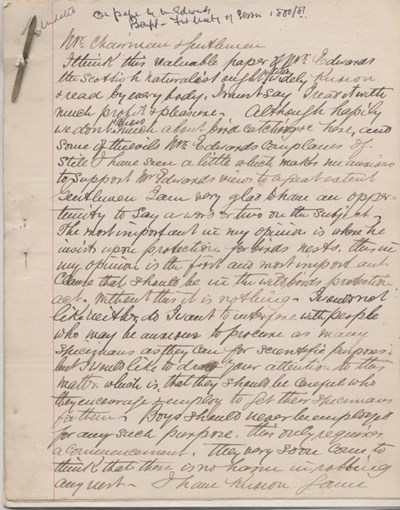 On paper by Mr Edwards
Mr. Chairman & Gentlemen
I think this valuable paper of Mr. Edwards
the Scottish naturalist ought widely known
& read by every body. I must say I read it with
much profit & pleasure. Although happily
we dont know much about bird catching here, and
some of the evils Mr Edwards complains of
still I have seen a little which makes me anxious
to support Mr Edwards views to a great extent
Gentlemen I am very glad to have an oppor
tunity to say a word or two on the subject.
The most important in my opinion is where he
insists upon protection for birds nests. this in
my opinion is the first and most important
Clause that should be in the wild birds protection
act. without this it is nothing. I would not
like neither do I want to interfere with people
who may be anxious to procure as many
specimens as they can for scientific purposes
but I would like to draw your attention to this
matter which is, that they should be careful who
they encourage & employ to get these specimens
for them. Boys should never be employed
for any such purpose. this only requires
a commencement. they very soon come to
think that there is no harm in robbing
any nest. I have known some